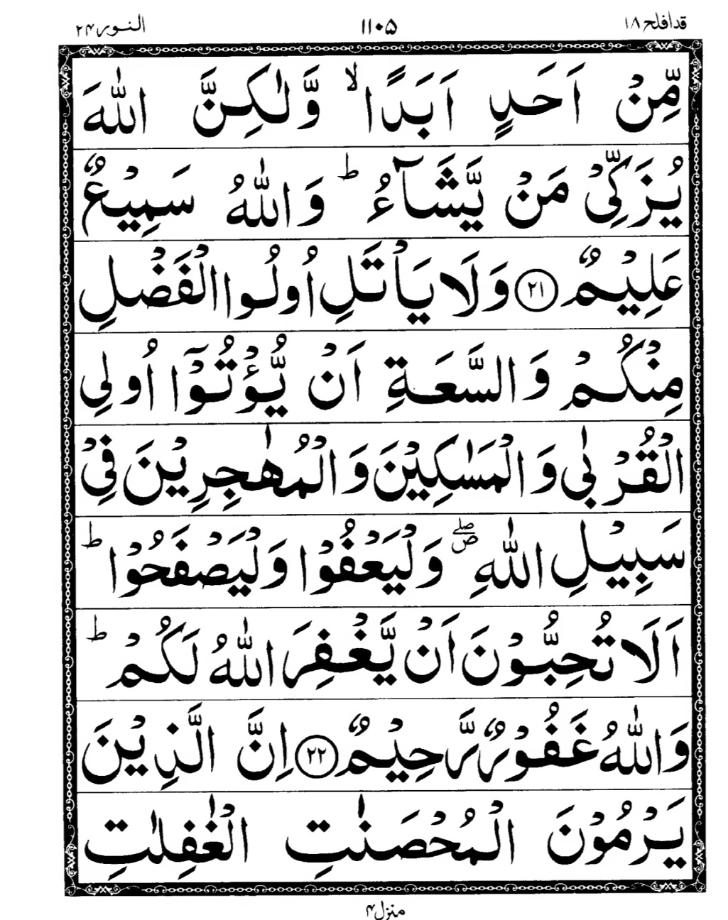 النور ۲۴ ۱۱۰۵ قد افلح ۱۸
مِّنْ اَحَدٍ اَبَدًا ۙ وَّلٰكِنَّ اللّٰهَ
يُزَكِّىْ مَنْ يَّشَآءُ ؕ وَاللّٰهُ سَمِيْعٌ
عَلِيْمٌ ﴿۲۱﴾ وَلَا يَاْتَلِ اُولُوا الْفَضْلِ
مِنْكُمْ وَالسَّعَةِ اَنْ يُّؤْتُوْۤا اُولِى
الْقُرْبٰى وَالْمَسٰكِيْنَ وَالْمُهٰجِرِيْنَ فِىْ
سَبِيْلِ اللّٰهِ ۖ وَلْيَعْفُوْا وَلْيَصْفَحُوْا ؕ
اَلَا تُحِبُّوْنَ اَنْ يَّغْفِرَ اللّٰهُ لَكُمْ ؕ
وَاللّٰهُ غَفُوْرٌ رَّحِيْمٌ ﴿۲۲﴾ اِنَّ الَّذِيْنَ
يَرْمُوْنَ الْمُحْصَنٰتِ الْغٰفِلٰتِ
منزل ۴